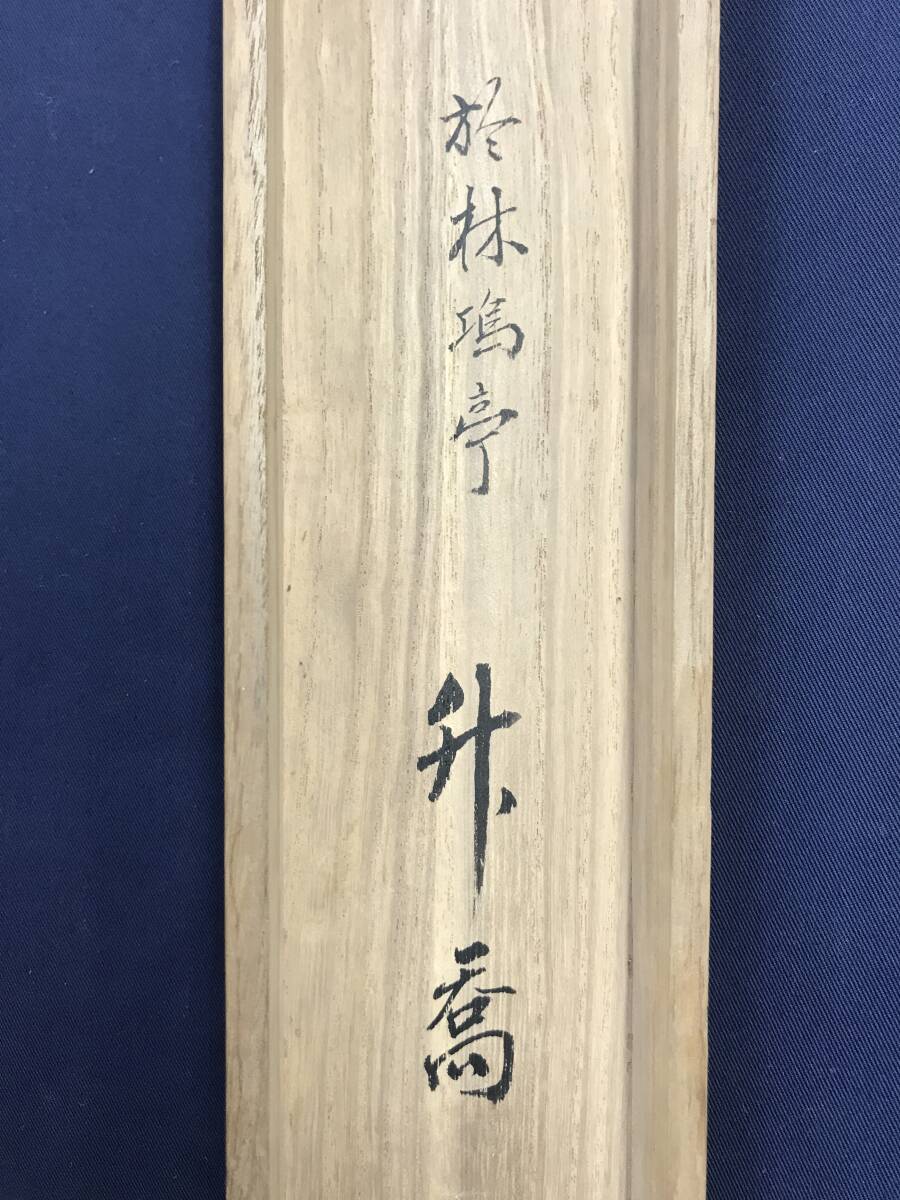 於林隖亭
升喬